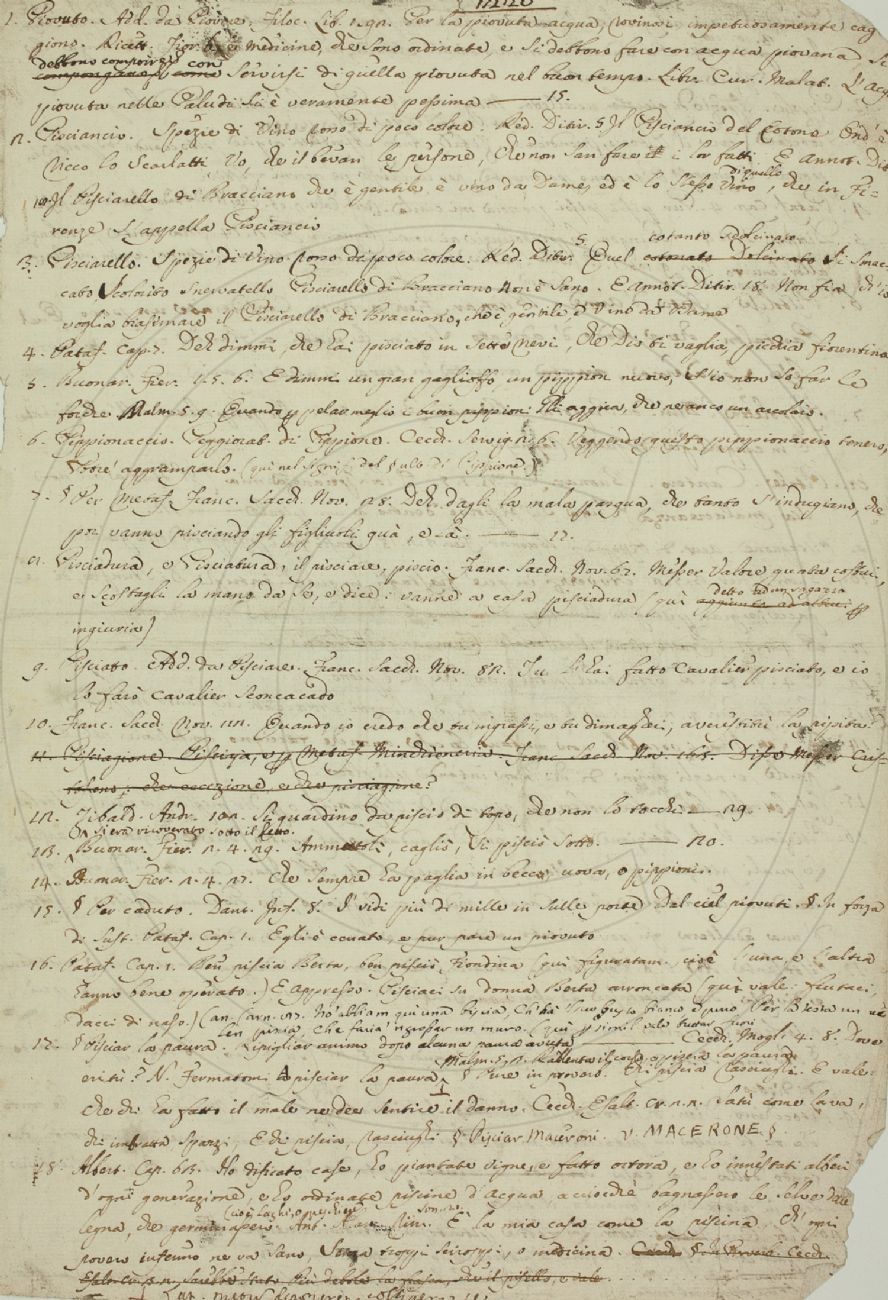 1. Piovuto. Add. da Piovere. Filoc. Lib. 1. 92. Per la piovuta acqua, rovinosi impetuosamente cag
gione. Ricett. Fior. 6. Le medicine, che sono ordinate, e si debbono fare con acqua piovana si
debbono comporre, con
Servirsi di quella piovuta nel buon tempo. Libr. Cur. Malat. L'Acq
piovuta nelle Paludi si è veramente pessima — 15.
2. Pisciancio. Spezie di Vino rosso di poco colore. Red. Ditir. 5 Il Pisciancio del Cotone Ond' è
ricco lo Scarlatti, Vo, che il bevan le persone, Che non san fare i lor fatti. E annot. Dit
Il Pisciarello di Bracciano che è gentile è vino da Dame, ed è lo stesso Vino di quello, che in Fi=
renze s'appella Pisciancio
3. Pisciarello. Spezie di Vino rosso di poco colore. Red. Ditir. 5. Quel cotanto sdolcinato Sì smac=
cato Scolorito Snervatello Pisciarello di Bracciano Non è sano. E annot. Ditir. 18. Non fia ch'io
voglia biasimare il Pisciarello di Bracciano, che è gentile, è Vino da Dame
4. Pataf. Cap. 7. Deh dimmi, che hai pisciato in sette nevi, Che Dio ti vaglia, picchia fiorentino
5. Buonar. Fier. 1. 5. 6. E dimmi un gran gaglioffo, un pippion nuovo, S'io non so far le
forche Malm. 5. 9. Quando p pelar meglio i buon pippioni Gli aggira, che ne anco un arcolaio.
6. Pippionaccio. Peggiorat. di Pippione. Cecch. Servig. 2. 6. Veggendo questo pippionaccio tenero,
Vorrè aggramparlo. (qui nel signif. del § ult. di Pippione.)
7. § Per Metaf. Franc. Sacch. Nov. 28. Deh dagli la mala pasqua, che tanto s'indugiano, che
poi vanno pisciando gli figliuoli quà, e là. — 17.
8. Pisciadura, e Pisciatura, il pisciare, piscio. Franc. Sacch. Nov. 67. Messer Valore guata costui,
e scostagli la mano da se, e dice: vanne a casa pisciadura (quì detto ad un ragazzo p
ingiuria)
9. Pisciato. Add. da Pisciare. Franc. Sacch. Nov. 82. Tu l'hai fatto Cavalier pisciato, e io
lo farò cavalier sconcacado
10. Franc. Sacch. Nov. 111. Quando io credo che tu ingrassi, e tu dimaghri, avrestù la pipita?
11. Pisciagione Piscian, e p Metaf. Minchioneria. Franc. Sacch. Nov. 165. Disse Messer
che eccezione, e che pisciagione?
12. Tibald. Andr. 102. Si guardino da piscio di topo, che non lo tocchi — 29.
Si era ricoverato sotto il letto.
13. Buonar. Fier. 2. 4. 29. Ammutolì, cagliò, Si pisciò sotto. — 20.
14. Buonar. Fier. 2. 4. 27. Che sempre ha paglia in becco, uova, o pippioni.
15. § Per caduto. Dant. Inf. 8. I' vidi più di mille in sulle porte Dal ciel piovuti. § In forza
di sust. Pataf. Cap. 1. Egli è ecuato, e pur pare un piovuto
16. Pataf. Cap. 1. Ben piscia Berta, ben pisciò Fiondina (quì figuratam. cioè l'una, e l'altra
hanno bene operato.) E appresso. Pisciaci su donna Berta arroncata (quì vale: fiutaci,
dacci di naso.) Can. Carn. 27. Noi abbiam qui una biscia, Ch'ha 'l suo busto bianco e puro
ben piscia, Che faria 'ngrossar un muro. (qui p simil. vale buttar fuori
17. § Pisciar la paura. Ripigliar animo dopo alcuna paura avuta — Cecch. Mogl. 4. 8. Dove
Malm. 5. 2. Rallenta il corso, e piscia la paura
eritù? N. Fermatomi A pisciar la paura § Pure in proverb. Chi piscia rasciughi. E vale:
che chi ha fatto il male ne dee sentire il danno. Cecch. Esalt. cr. 2. 2. Fatù come lava,
chi imbratta spazzi, E chi piscia, rasciughi § Pisciar Maceroni. V. MACERONE §.
18. Albert. Cap. 63. Ho dificato case, ho piantate vigne, e fatto ortora, e ho innestati alberi
d'ogni generazione, e ho ordinate piscine d'Acqua, acciocchè bagnassero le selve delle
legna, che germinassero. (cioè laghi, o peschiere) Ant. Alam. son. 20. È la mia casa come la piscina, Ch' ogni
povero infermo ne va sano, Senza troppi sciroppi, o medicina.